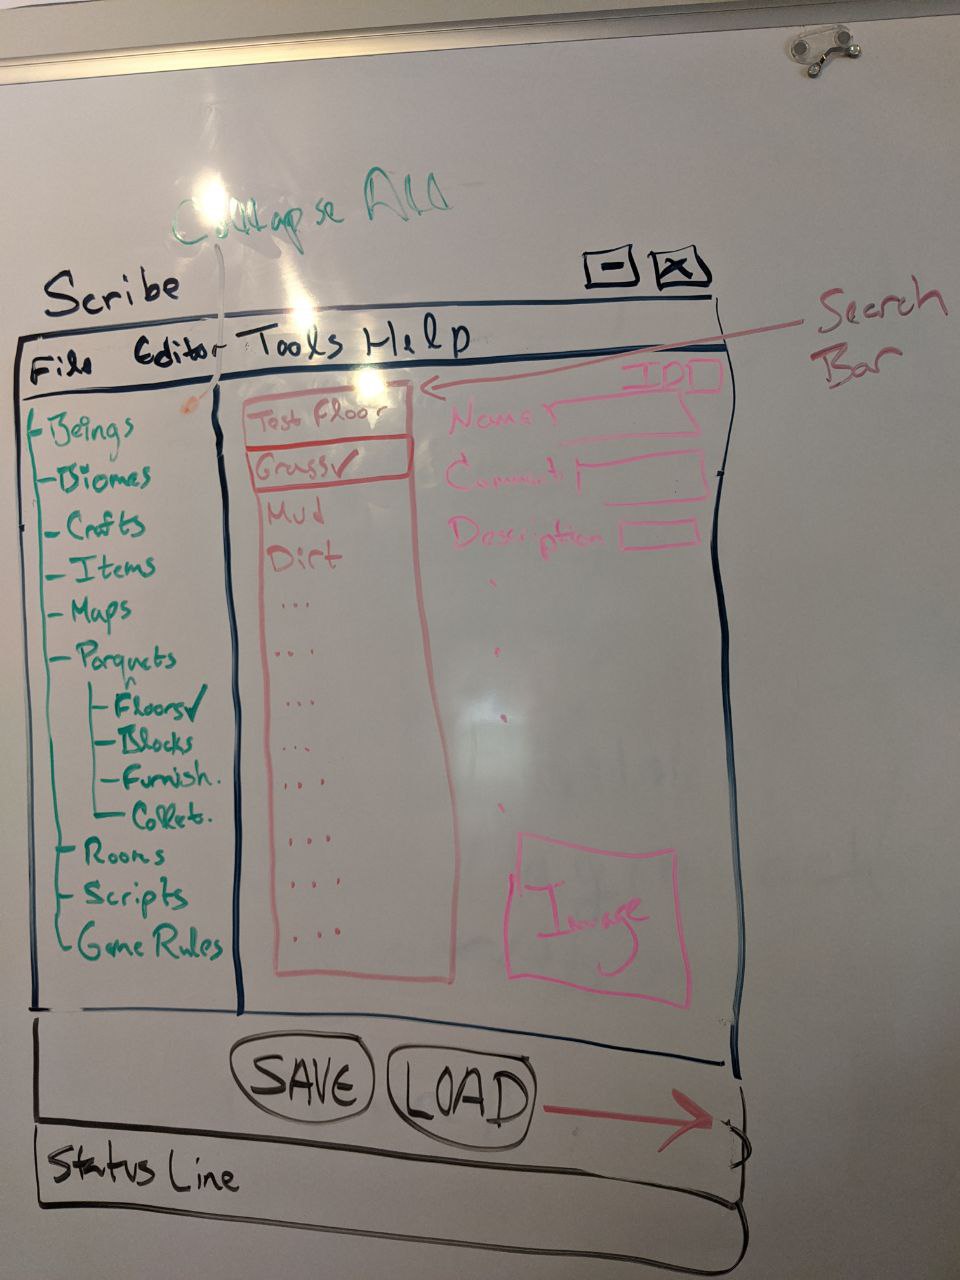 Collapse All
Scribe
- X
Search
Bar
File Editor Tools Help
Beings
Biomes
Crafts
Items
Maps
Parquets
Floors✓
Blocks
Furnish.
Collect.
Rooms
Scripts
Game Rules
Test Floor
Grass✓
Mud
Dirt
...
...
...
...
...
...
...
...
ID
Name
Comment
Description
Image
SAVE LOAD
Status Line